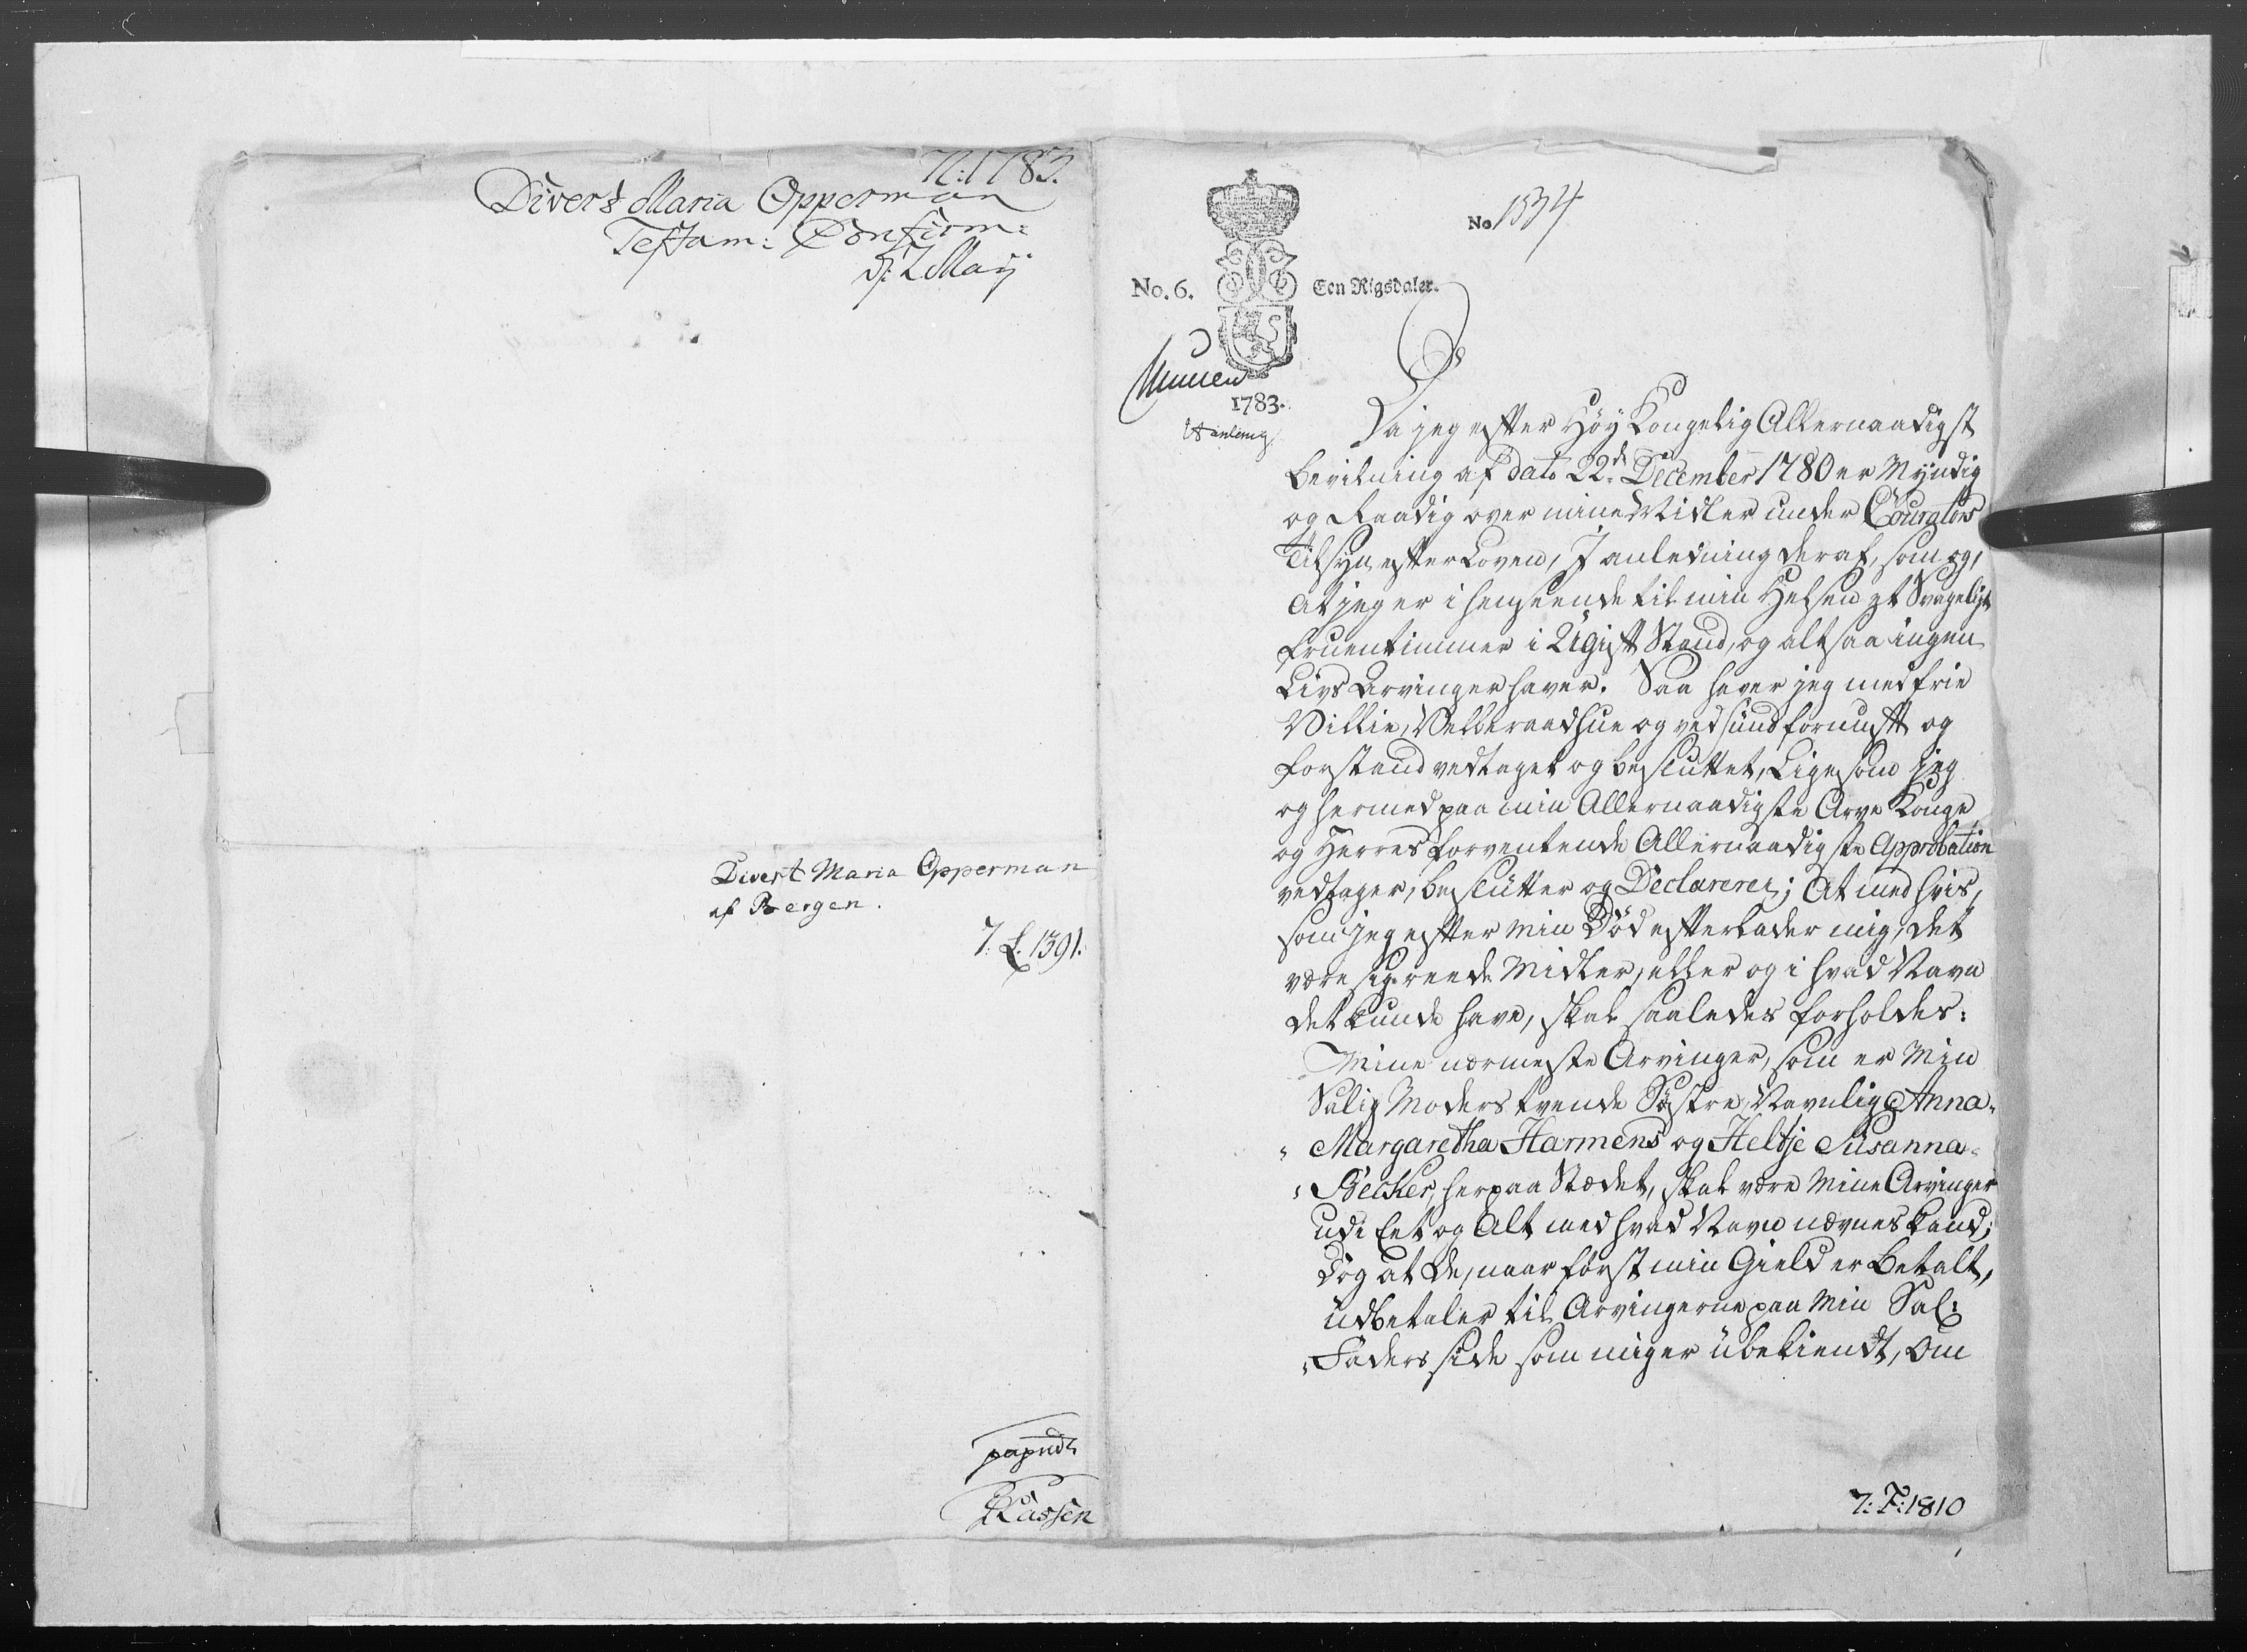 N: 1783.
Divert Maria Opperman
Testam: Confirm:
d: 2 Maÿ
Divert Maria Opperman
af Bergen.
7. L. 1391.
Kassen
No 1534
No. 6. Een Rigsdaler.
1783.
Da jeg efter Høy Kongelig Allernaadigst
bevilning af dato 22de December 1780 er Myndig
og Raadig over mine Midler under Courators
Tilsyn efter Loven, I anledning deraf, som og,
At jeg er i henseende til min Helsen et Svageligt
fruentimmer i Ugift Stand, og altsaa ingen
Livs Arvinger haver. Saa haver jeg med frie
Villie, Velberaad hue og ved sund fornuft og
forstand vedtaget og besluttet, Ligesom jeg
og hermed paa min Allernaadigste Arve Konge
og Herres forventende Allernaadigste Approbation
vedtager, beslutter og Declarerer; At med hvis,
som jeg efter min Død efterlader mig, det
være sig reede Midler, eller og i hvad Navn
det kunde have, skal saaledes forholdes:
Mine nærmeste Arvinger, som er Min
Salig Moders tvende Søstre, Navnlig Anna-
Margaretha Harmens og Heltje Susanna-
Becker, her paa Stædet, skal være Mine Arvinger
udi Eet og Alt med hvad Navn nævnes kand;
dog at de, naar først min Gield er betalt,
udbetaler til Arvingerne paa Min Sal:
Faders side som mig er ubekiendt, Om
7: F: 1810